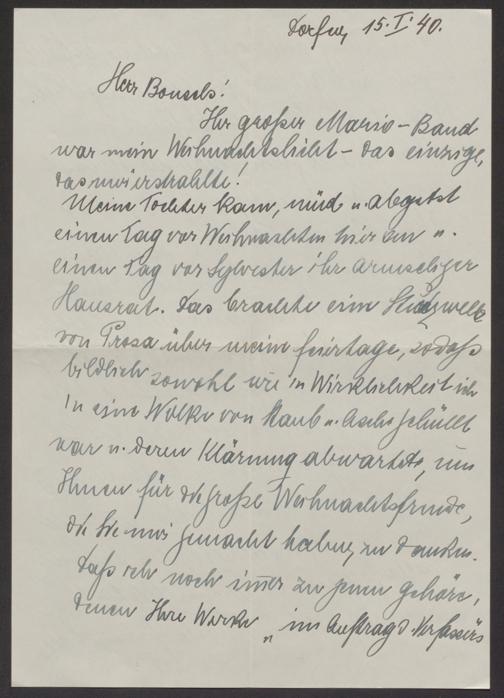 Dorfen, 15. I. 40.
Herr Bonsels!
Ihr großer Mario-Band
war mein Weihnachtslicht - das einzige,
das mir erstrahlte!
Meine Tochter kam, müd u. abgehetzt
einen Tag vor Weihnachten hier an u.
einen Tag vor Sylvester ihr armseliger
Hausrat. Das brachte eine
von Prosa über meine Feiertage, sodaß
bildlich sowohl wie in Wirklichkeit ich
in eine Wolke von Staub u. Asche gehüllt
war u. deren Klärung abwartete, um
Ihnen für die große Weihnachtsfreude,
die Sie mir gemacht haben, zu danken.
Daß ich noch im̅er zu jenen gehöre,
denen Ihre Werke „im Auftrag d. Verfassers